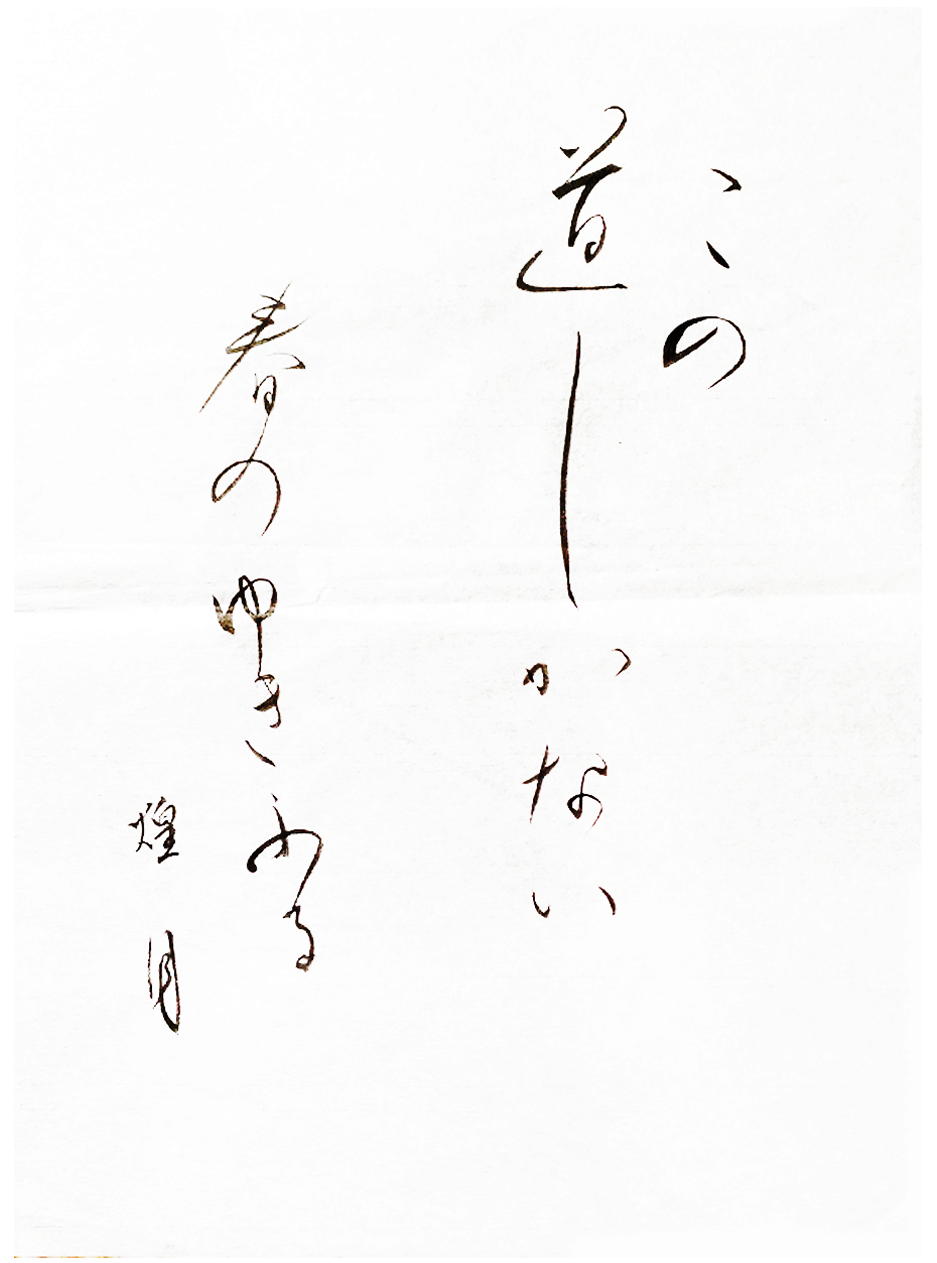 この
道しかない
春のゆきふる
煌月